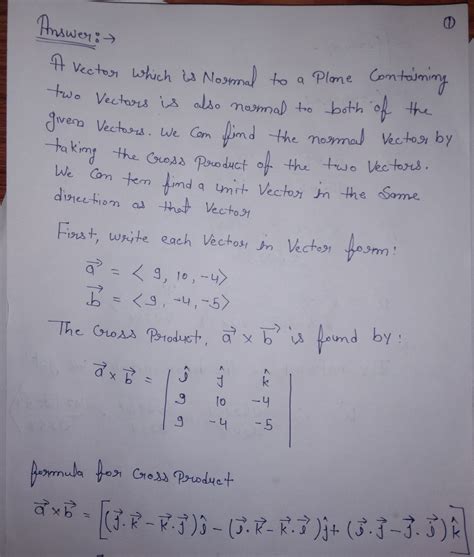 ①
Answer:→
A vector which is Normal to a Plane Containing
two Vectors is also normal to both of the
given Vectors. We Can find the normal Vector by
taking the Cross Product of the two Vectors.
We Can ten find a unit Vector in the Same
direction as that Vector
First, write each Vector in Vector form:
a⃗ = < 9, 10, -4>
b⃗ = < 9, -4, -5>
The Cross Product, a⃗ x b⃗ is found by:
a⃗ x b⃗ = | î ĵ k̂ |
| 9 10 -4 |
| 9 -4 -5 |
formula for Cross Product
a⃗ x b⃗ = [(j⃗.k⃗ - k⃗.j⃗)î - (i⃗.k⃗ - k⃗.i⃗)ĵ + (i⃗.j⃗ - j⃗.i⃗)k̂]